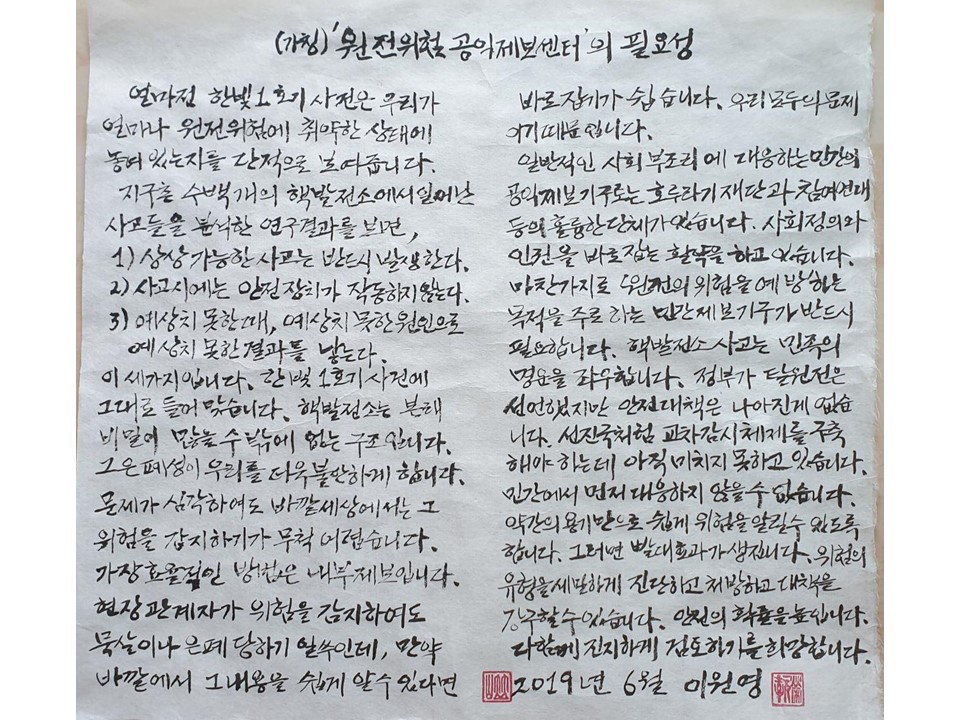 (가칭) '원전위험 공익제보센터'의 필요성
얼마전 한빛1호기 사건은 우리가
얼마나 원전위험에 취약한 상태에
놓여 있는지를 단적으로 보여줍니다.
지구촌 수백개의 핵발전소에서 일어난
사고들을 분석한 연구결과를 보면,
1) 상상 가능한 사고는 반드시 발생한다.
2) 사고시에는 안전장치가 작동하지 않는다.
3) 예상치 못한 때, 예상치 못한 원인으로
예상치 못한 결과를 낳는다.
이 세가지입니다. 한빛 1호기 사건에
그대로 들어 맞습니다. 핵발전소는 본래
비밀이 많을 수 밖에 없는 구조입니다.
그 은폐성이 우리를 더욱 불안하게 합니다.
문제가 심각하여도 바깥세상에서는 그
위험을 감지하기가 무척 어렵습니다.
가장 효율적인 방법은 내부제보입니다.
현장관계자가 위험을 감지하여도
묵살이나 은폐 당하기 일쑤인데, 만약
바깥에서 그 내용을 쉽게 알 수 있다면
바로잡기가 쉽습니다. 우리 모두의 문제
이기 때문입니다.
일반적인 사회 부조리에 대응하는 민간의
공익제보기구로는 호루라기 재단과 참여연대
등의 훌륭한 단체가 있습니다. 사회정의와
인권을 바로잡는 활약을 하고 있습니다.
마찬가지로 '원전의 위험을 예방'하는
목적을 주로 하는 민간제보기구가 반드시
필요합니다. 핵발전소 사고는 민족의
명운을 좌우합니다. 정부가 탈원전은
선언했지만 안전대책은 나아진게 없습
니다. 선진국처럼 교차감시체제를 구축
해야 하는데 아직 미치지 못하고 있습니다.
민간에서 먼저 대응하지 않을 수 없습니다.
약간의 용기만으로 쉽게 위험을 알릴 수 있도록
합니다. 그러면 빨대효과가 생깁니다. 위험의
유형을 세밀하게 진단하고 처방하고 대책을
강구할 수 있습니다. 안전의 확률을 높입니다.
다함께 진지하게 검토하기를 희망합니다.
2019년 6월 이원영